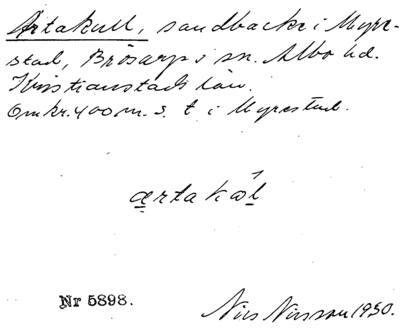 Ärtakull, sandbacke i Myre-
stad, Brösarps sn. Albo hd.
Kristianstads län.
Omkr. 400 m. s. t. i Myrestad.
ærtakωl
Nr 5898.
Nils Nilsson 1930.